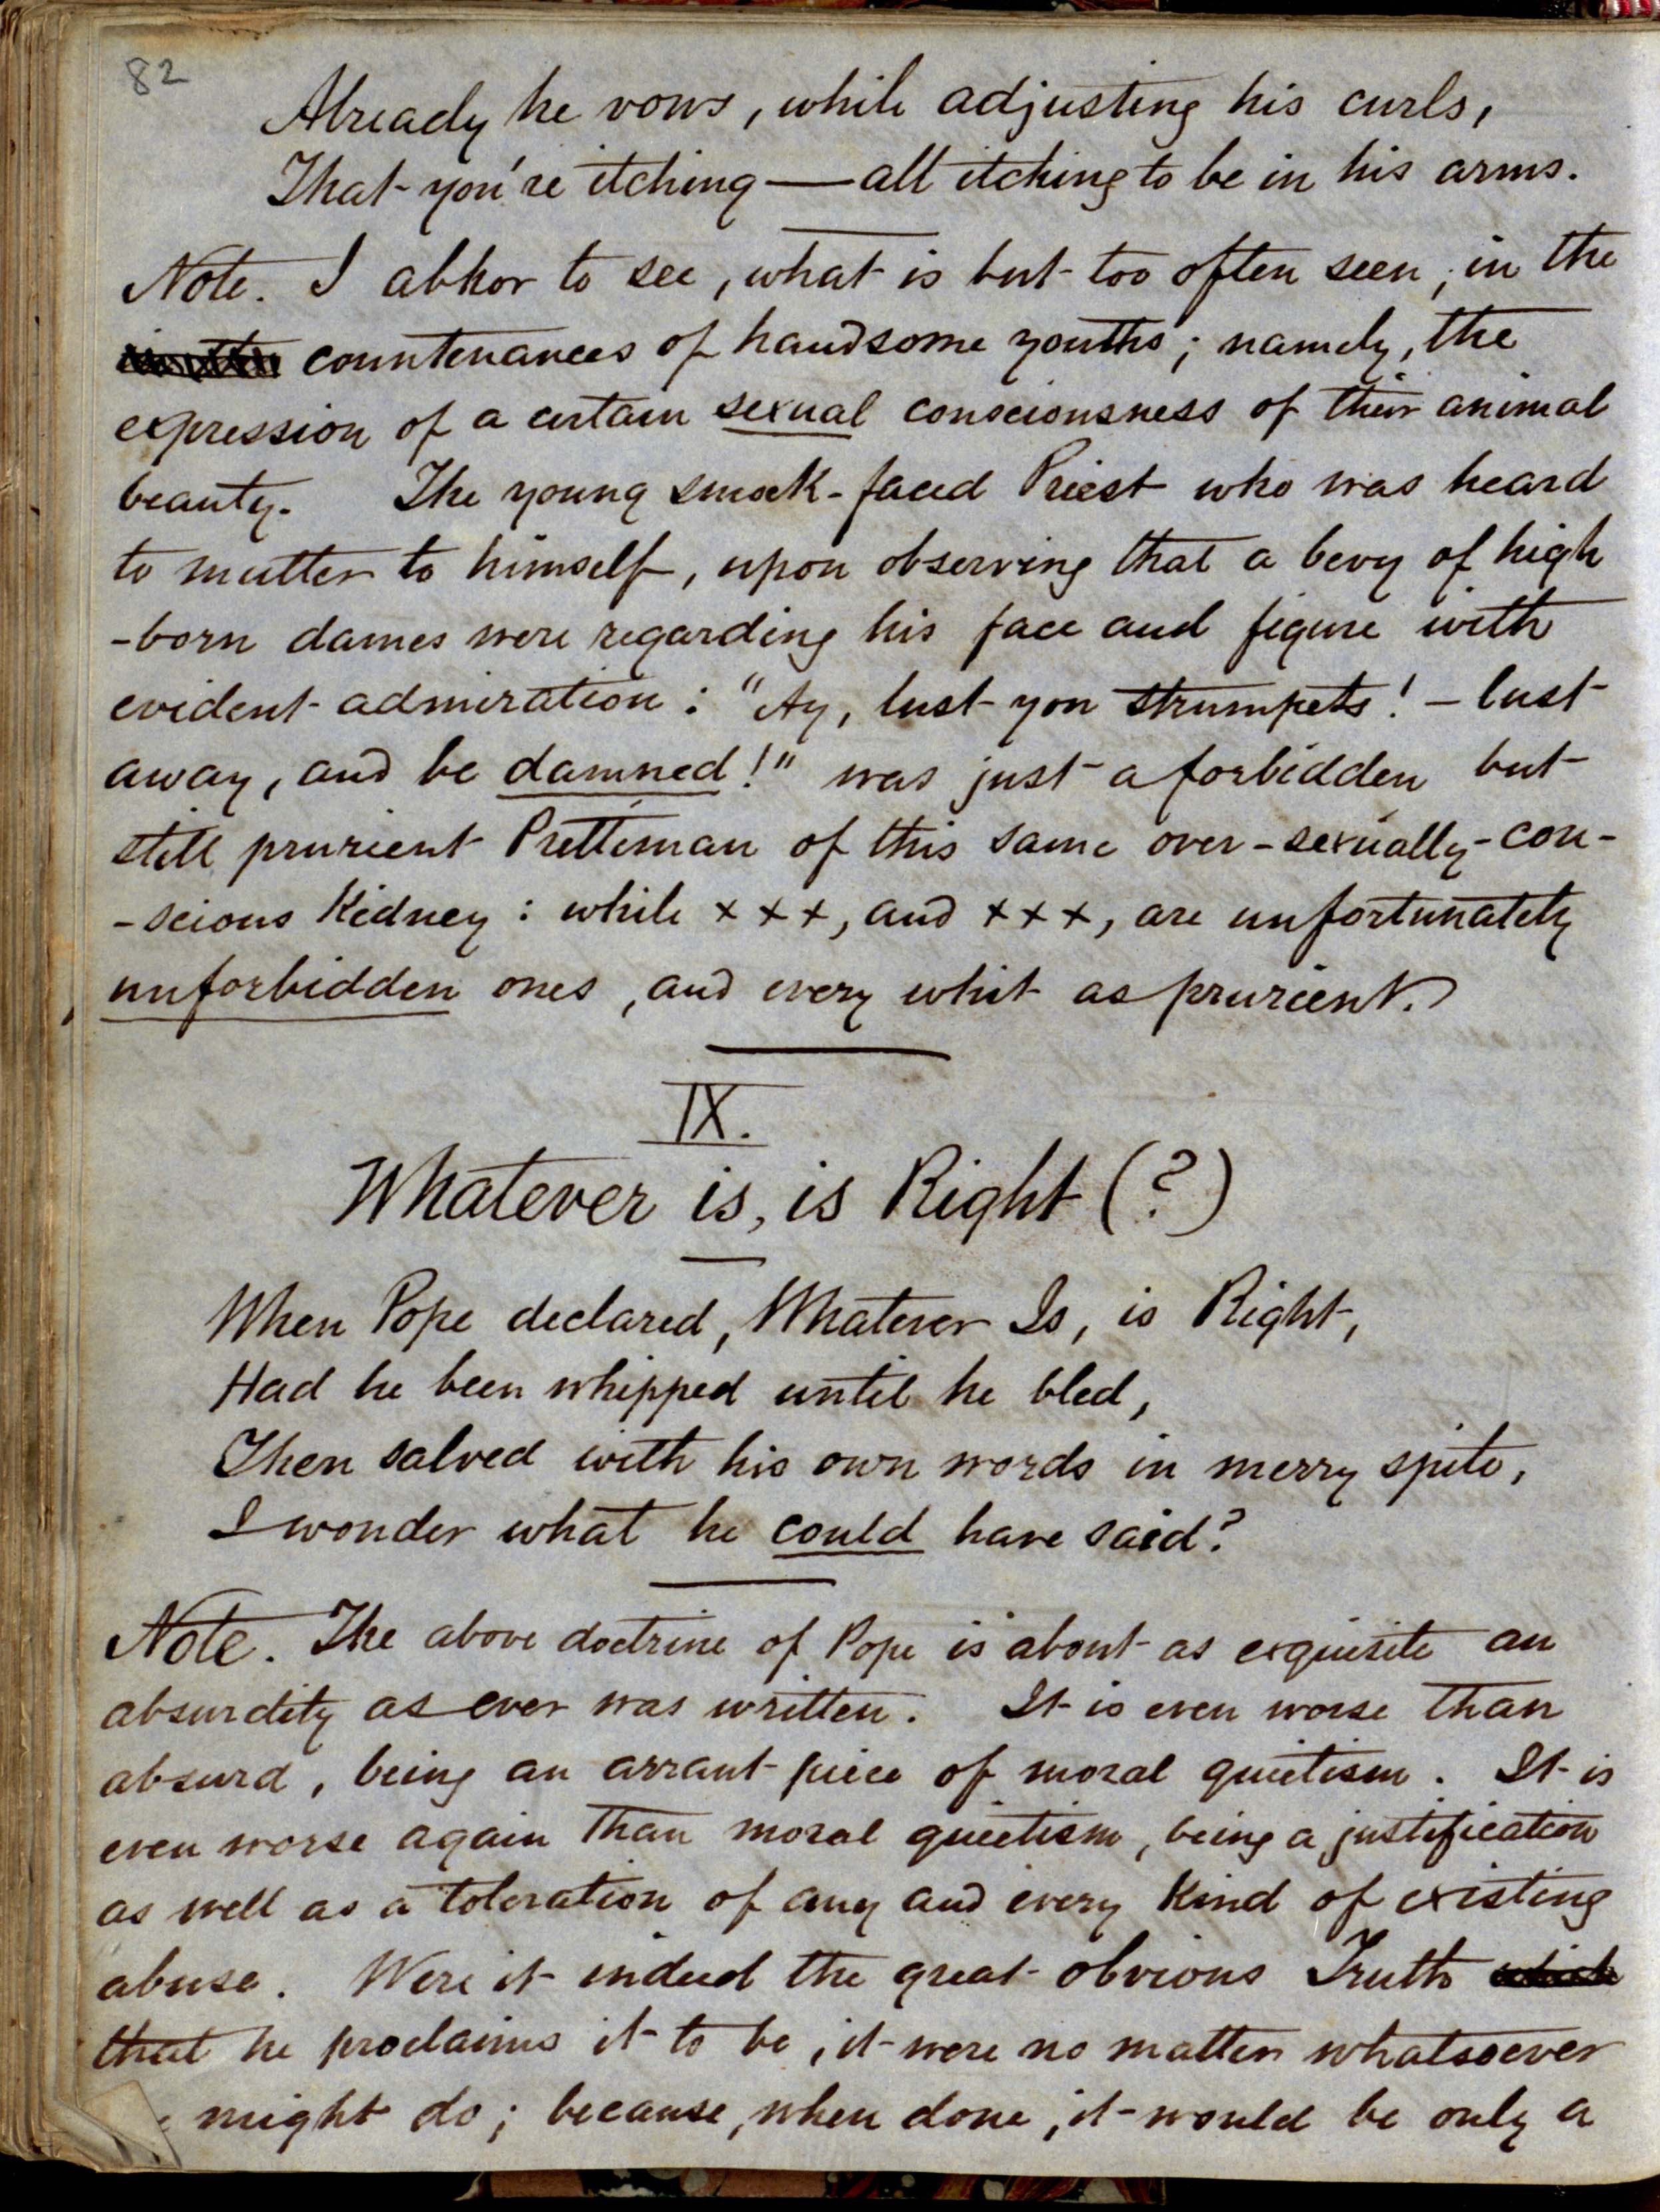 82
Already he vows, while adjusting his curls,
That you're itching — all itching to be in his arms.
Note. I abhor to see, what is but too often seen, in the
countenances of handsome youths; namely, the
expression of a certain sexual consciousness of their animal
beauty. The young smock-faced Priest who was heard
to mutter to himself, upon observing that a bevy of high
-born dames were regarding his face and figure with
evident admiration: "Ay, lust you strumpets! — lust
away, and be damned!" was just a forbidden but
still prurient Prettiman of this same over-sexually-con-
-scious Kidney: while +++, and +++, are unfortunately
unforbidden ones, and every whit as prurient.
IX.
Whatever is, is Right (?)
When Pope declared, Whatever Is, is Right,
Had he been whipped until he bled,
Then salved with his own words in merry spite,
I wonder what he could have said?
Note. The above doctrine of Pope is about as exquisite an
absurdity as ever was written. It is even worse than
absurd, being an arrant piece of moral quietism. It is
even worse again than moral quietism, being a justification
as well as a toleration of any and every kind of existing
abuse. Were it indeed the great obvious Truth which
that he proclaims it to be, it were no matter whatsoever
might do; because, when done, it would be only a